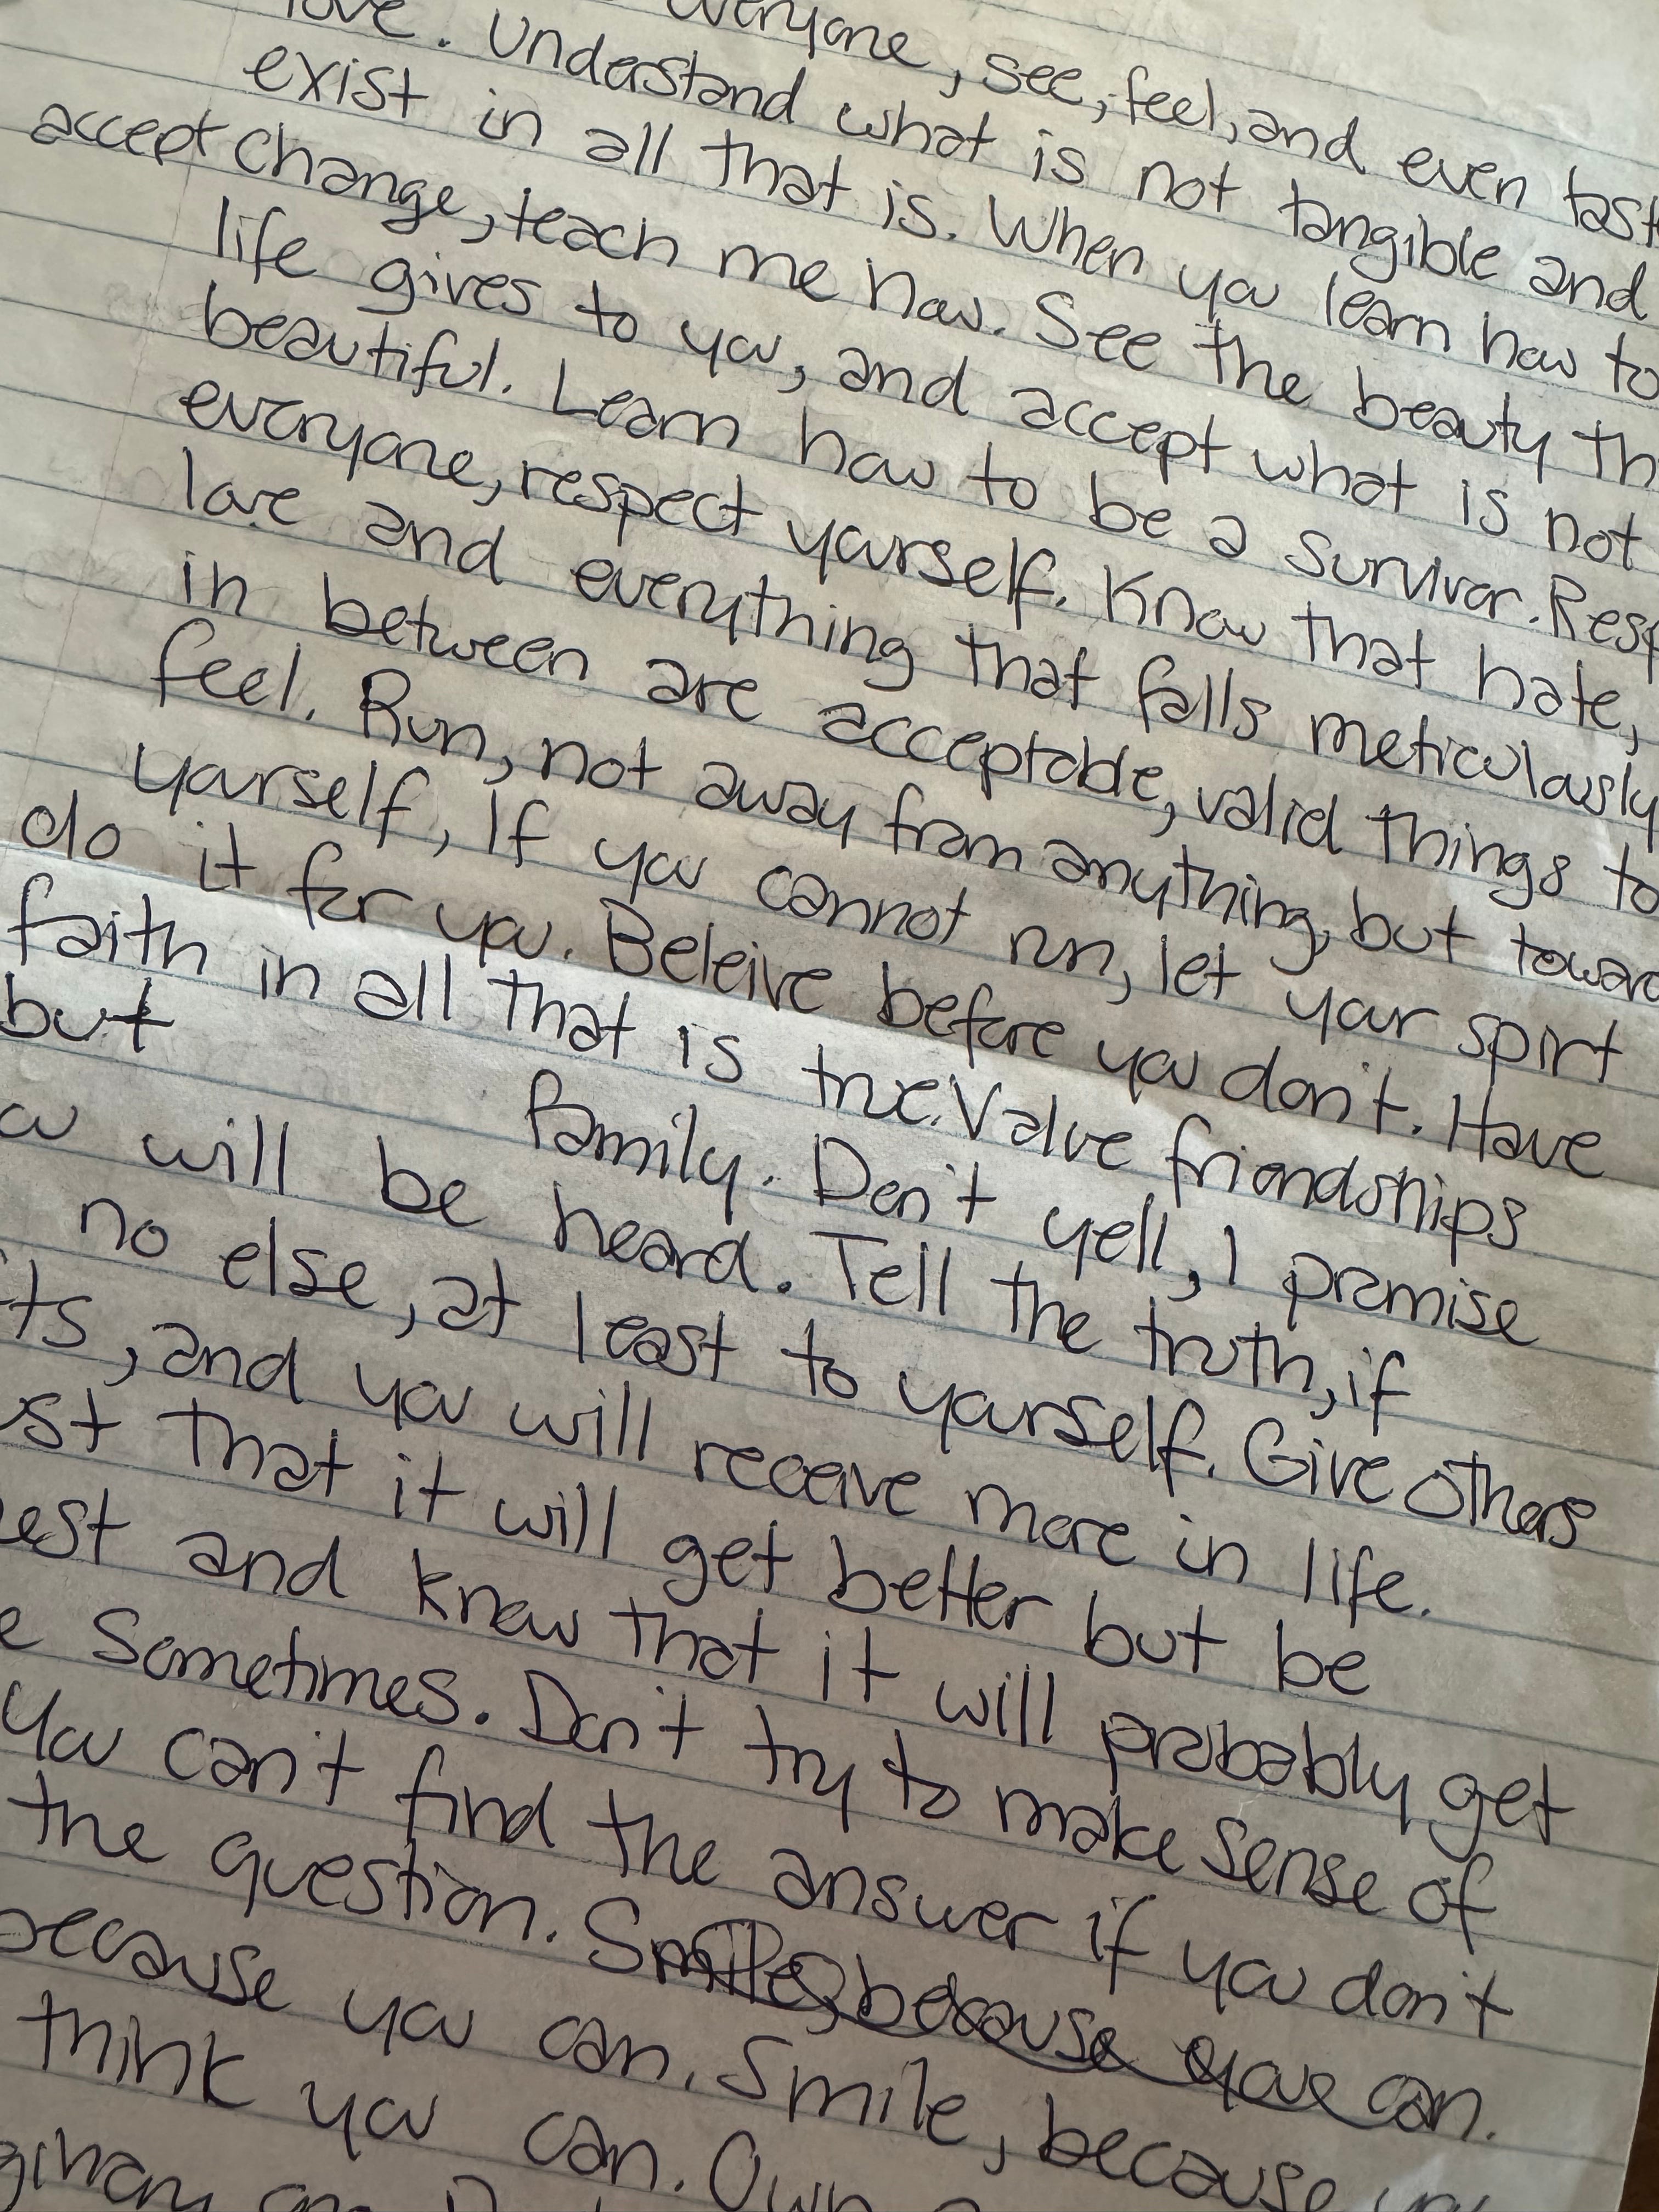 everyone, see, feel, and even tast
love. Understand what is not tangible and
exist in all that is. When you learn how to
accept change, teach me how. See the beauty th
life gives to you, and accept what is not
beautiful. Learn how to be a survivor. Resp
everyone, respect yourself. Know that hate,
love and everything that falls meticulously
in between are acceptable, valid things to
feel. Run, not away from anything, but toward
yourself, If you cannot run, let your spirt
do it for you. Beleive before you don't. Have
faith in all that is true. Value friendships
but family. Don't yell, I promise
will be heard. Tell the truth, if
no else, at least to yourself. Give others
ts, and you will receive more in life.
st that it will get better but be
est and know that it will probably get
e Sometimes. Don't try to make sense of
You can't find the answer if you don't
the question. Smile, because you can.
because you can. Smile, because
think you can. Own